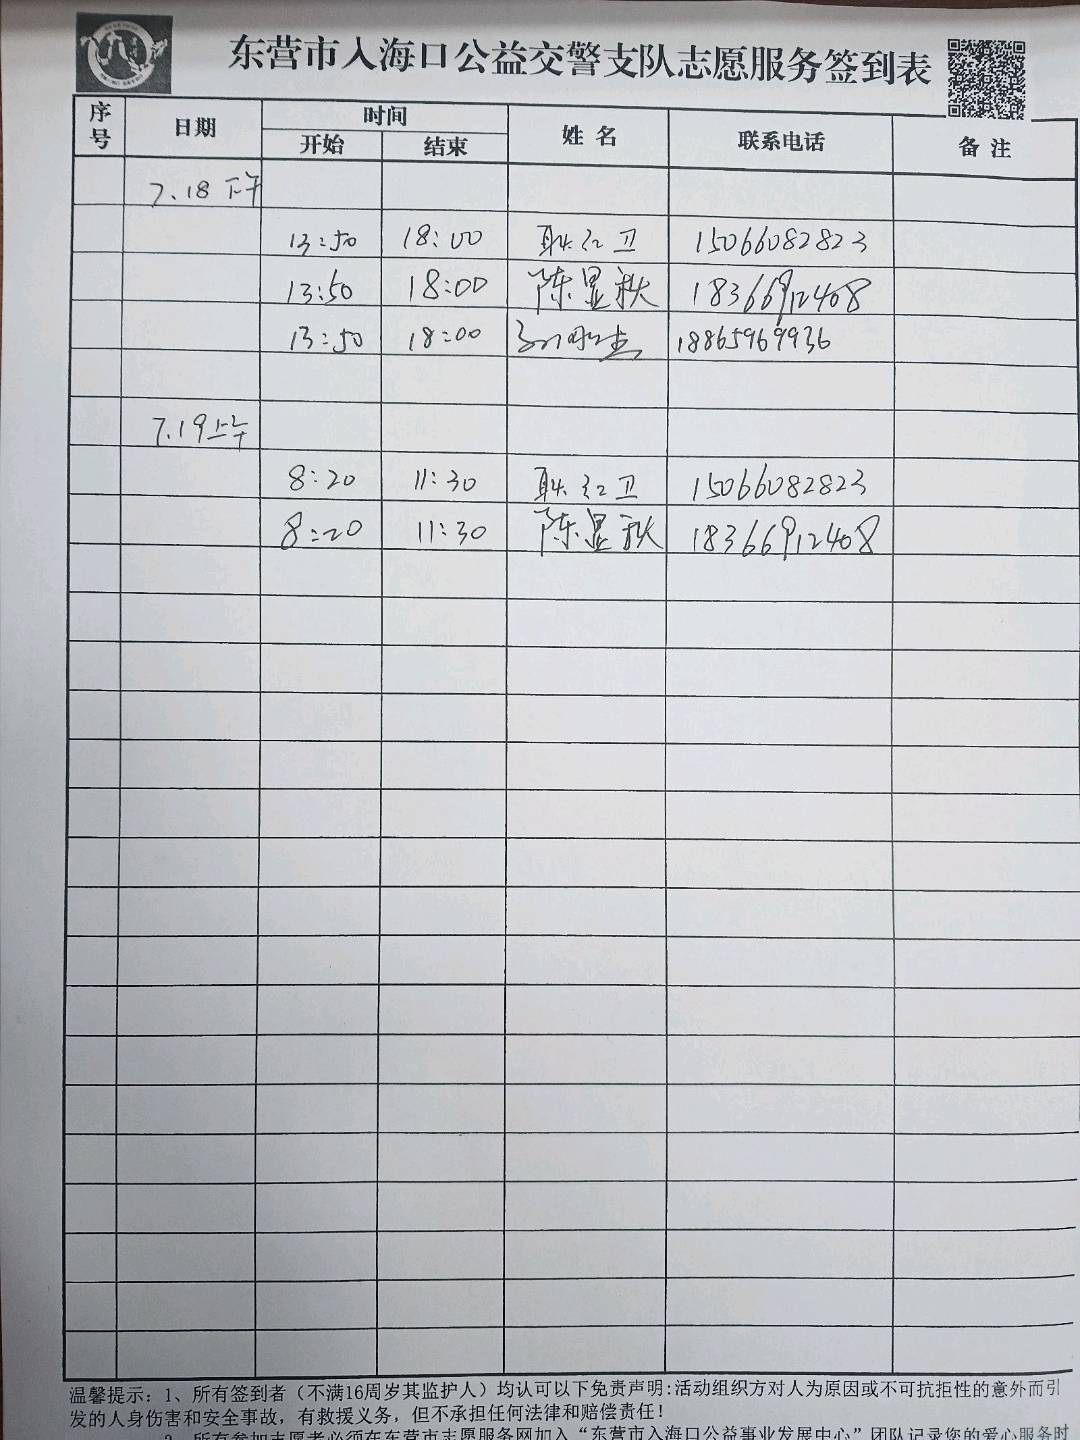 东营市入海口公益交警支队志愿服务签到表
序号 日期 时间 姓名 联系电话 备注
开始 结束
7.18 下午
13:50 18:00 耿红卫 15066082823
13:50 18:00 陈显秋 18366912408
13:50 18:00 18865969936
7.19 上午
8:20 11:30 耿红卫 15066082823
8:20 11:30 陈显秋 18366912408
温馨提示：1、所有签到者（不满16周岁其监护人）均认可以下免责声明:活动组织方对人为原因或不可抗拒性的意外而引
发的人身伤害和安全事故，有救援义务，但不承担任何法律和赔偿责任！
2、所有参加志愿者必须在东营市志愿服务网加入“东营市入海口公益事业发展中心”团队记录您的爱心服务时